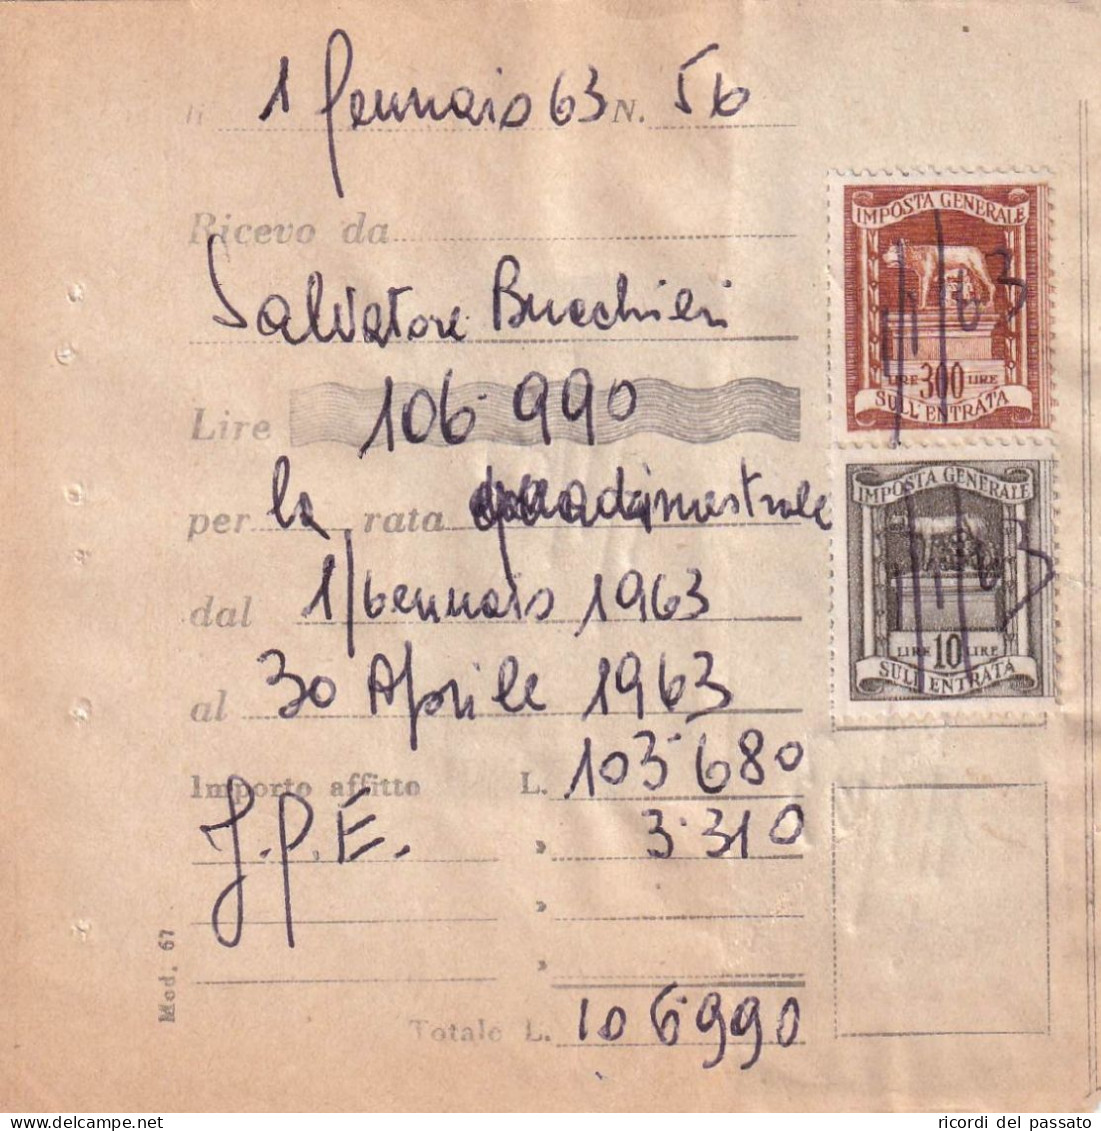 lì 1 Gennaio 63 N. 56
Ricevo da
Salvatore Bucchieri
Lire 106.990
per la rata quadrimestrale
dal 1/Gennaio 1963
al 30 Aprile 1963
Importo affitto L. 103.680
J.P.E. » 3.310
»
»
Totale L. 106990
Mod. 67
IMPOSTA GENERALE
63
LIRE 300 LIRE
SULL'ENTRATA
IMPOSTA GENERALE
63
LIRE 10 LIRE
SULL'ENTRATA
delcampe.net
ricordi del passato